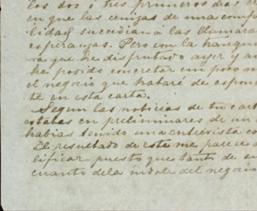 los dos ó tres primeros dias
en que las cenizas de una
sucedian á las llamara
esperanzas. Pero con la tranqui
que he disfrutado ayer y
he podido concretar un poco
el negocio que trataré de espone
te en esta carta.
Segun las noticias de tu cart
estabas en preliminares de un
habias tenido una entrevista co
El resultado de este me parece
lificar puesto que tanto de
cuanto de la del negocio